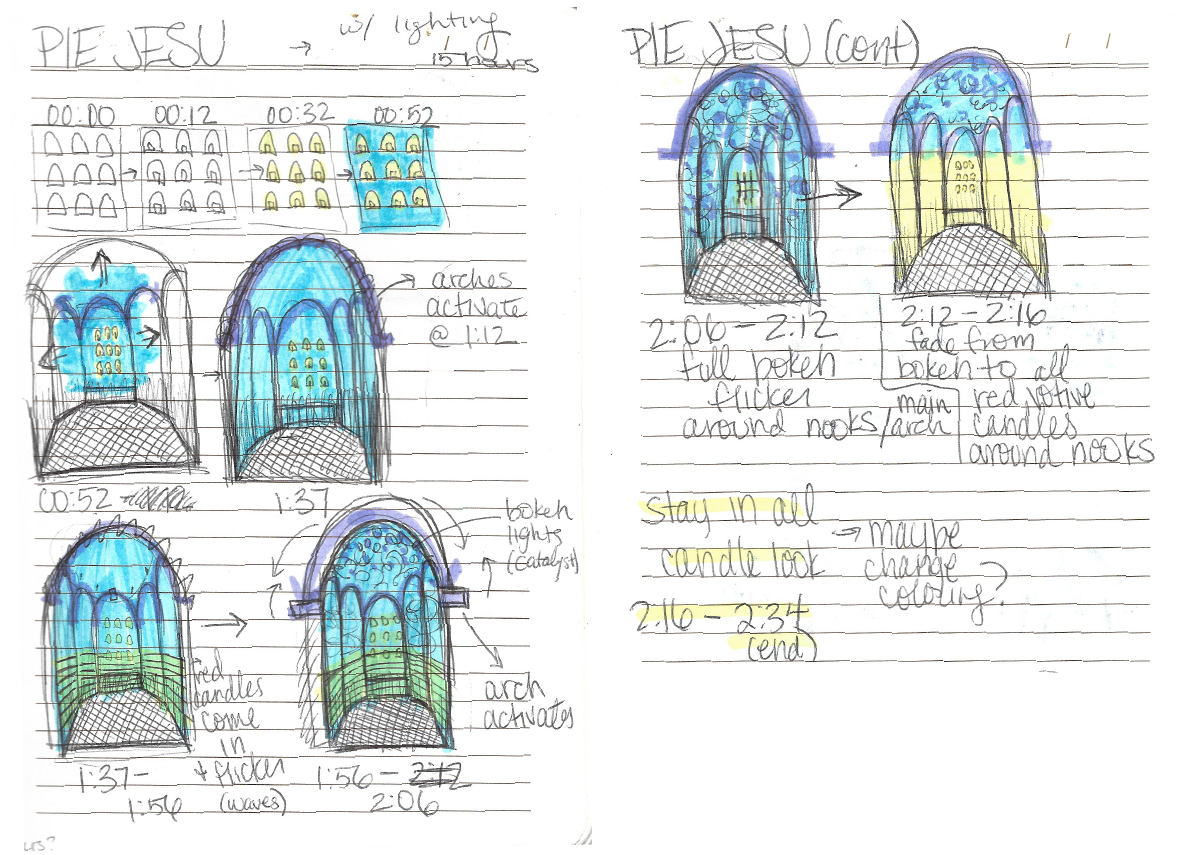 PIE JESU → w/ lighting
15 hours
00:00 00:12 00:32 00:52
arches
activate
@ 1:12
00:52 -
1:37
bokeh
lights
(catalyst)
red
candles
come
in
+ flicker
(waves)
1:37-
1:56
arch
activates
1:56 - 2:12
2:06
PIE JESU (cont)
2:06 - 2:12
full bokeh
flicker
around nooks/main
arch
2:12 - 2:16
fade from
bokeh to all
red votive
candles
around nooks
stay in all
candle look
2:16 - 2:34
(end)
→ maybe
change
coloring?